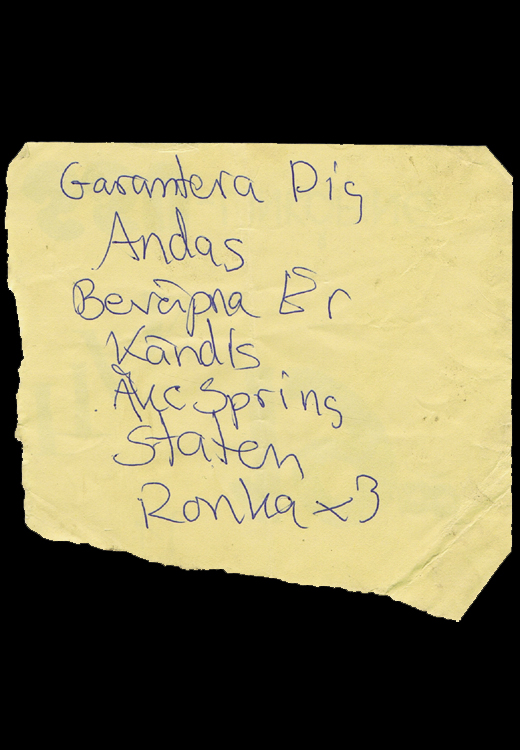 Garantera Dig
Andas
Beväpna Er
Kändis
Åke Spring
Staten
Ronka x3